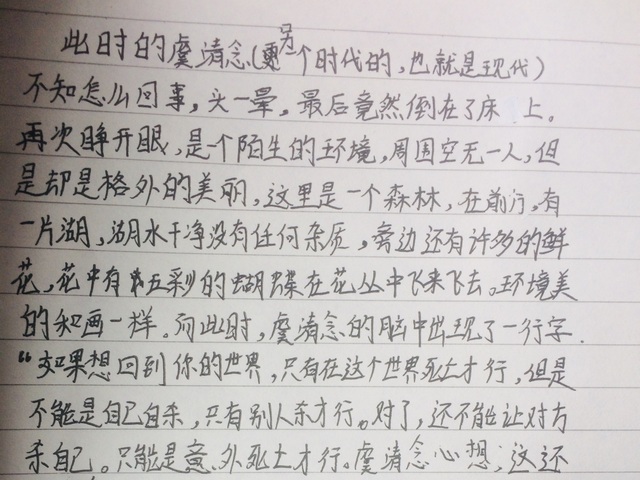 此时的虞清念(另一个时代的,也就是现代)
不知怎么回事,头一晕,最后竟然倒在了床上。
再次睁开眼,是个陌生的环境,周围空无一人,但
是却是格外的美丽,这里是一个森林,在前方,有
一片湖,湖水干净没有任何杂质,旁边还有许多的鲜
花,花中有五彩的蝴蝶在花丛中飞来飞去。环境美
的和画一样。而此时,虞清念的脑中出现了一行字.
“如果想回到你的世界,只有在这个世界死亡才行,但是
不能是自己自杀,只有别人杀才行。对了,还不能让对方
杀自己。只能是意外死亡才行。虞清念心想,这还